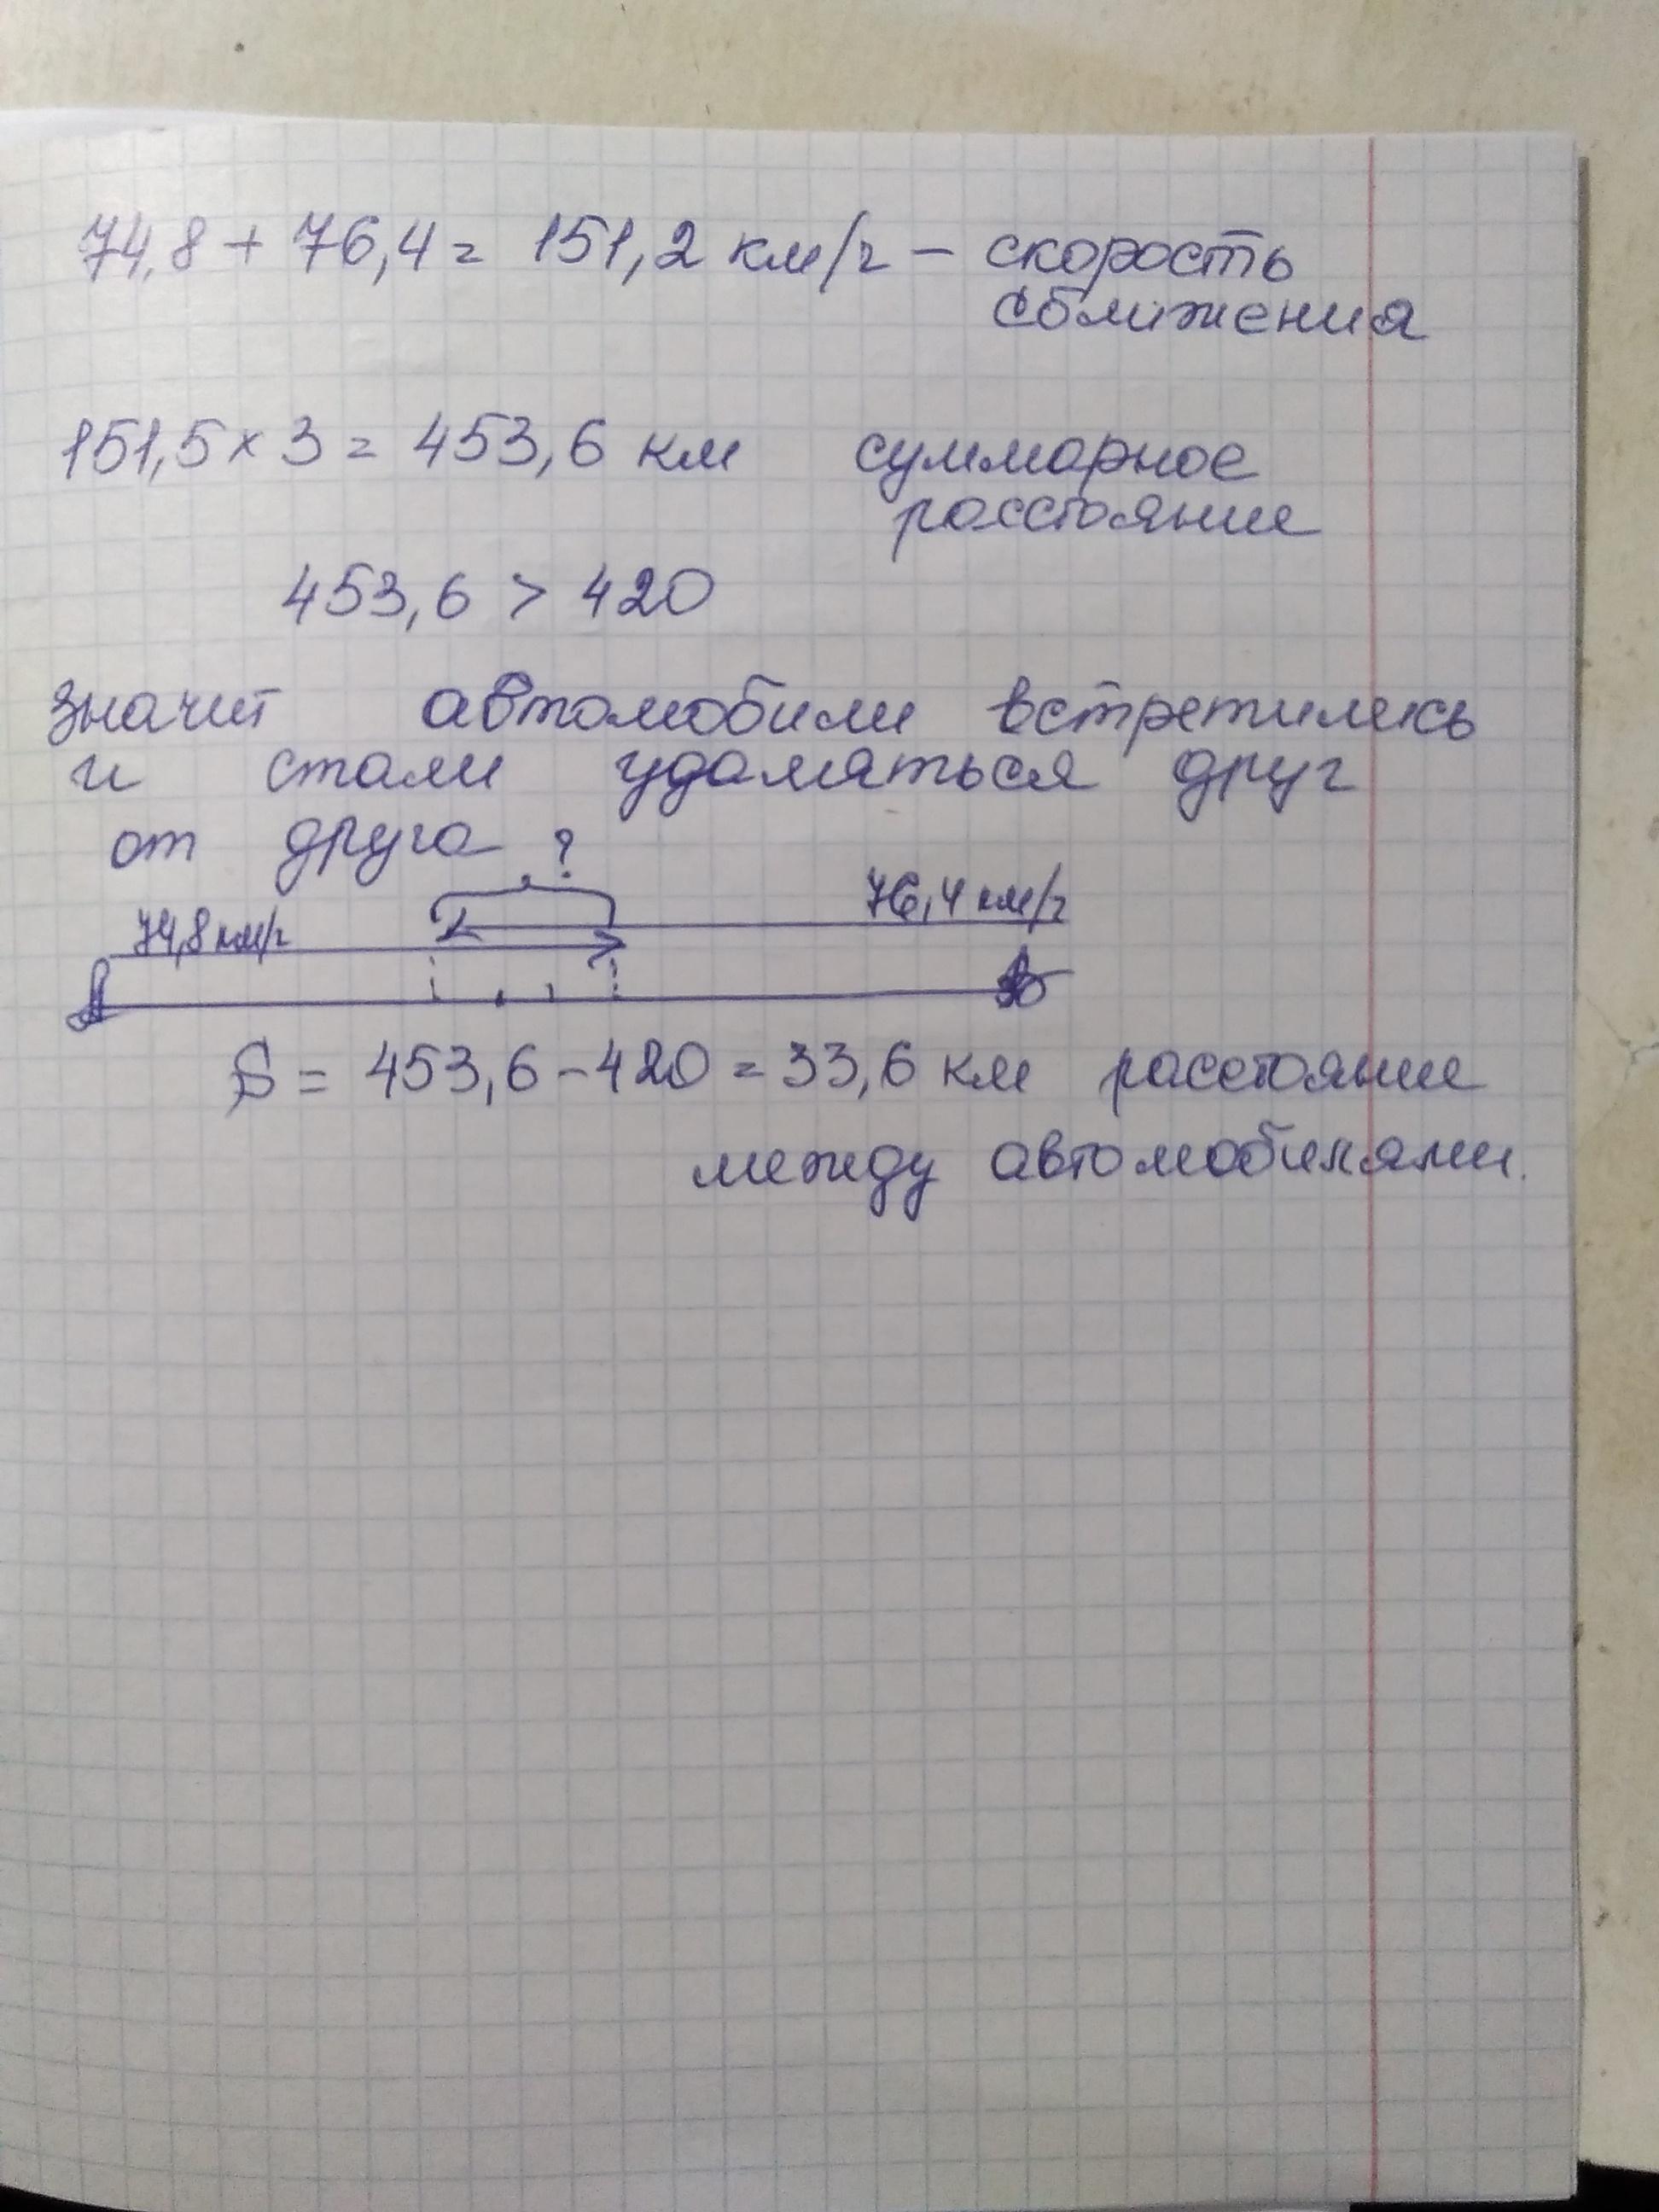 74,8 + 76,4 = 151,2 км/ч – скорость
сближения
151,5 × 3 = 453,6 км суммарное
расстояние
453,6 > 420
значит автомобили встретились
и стали удаляться друг
от друга
?
74,8 км/ч
76,4 км/ч
А
В
S = 453,6 – 420 = 33,6 км расстояние
между автомобилями.